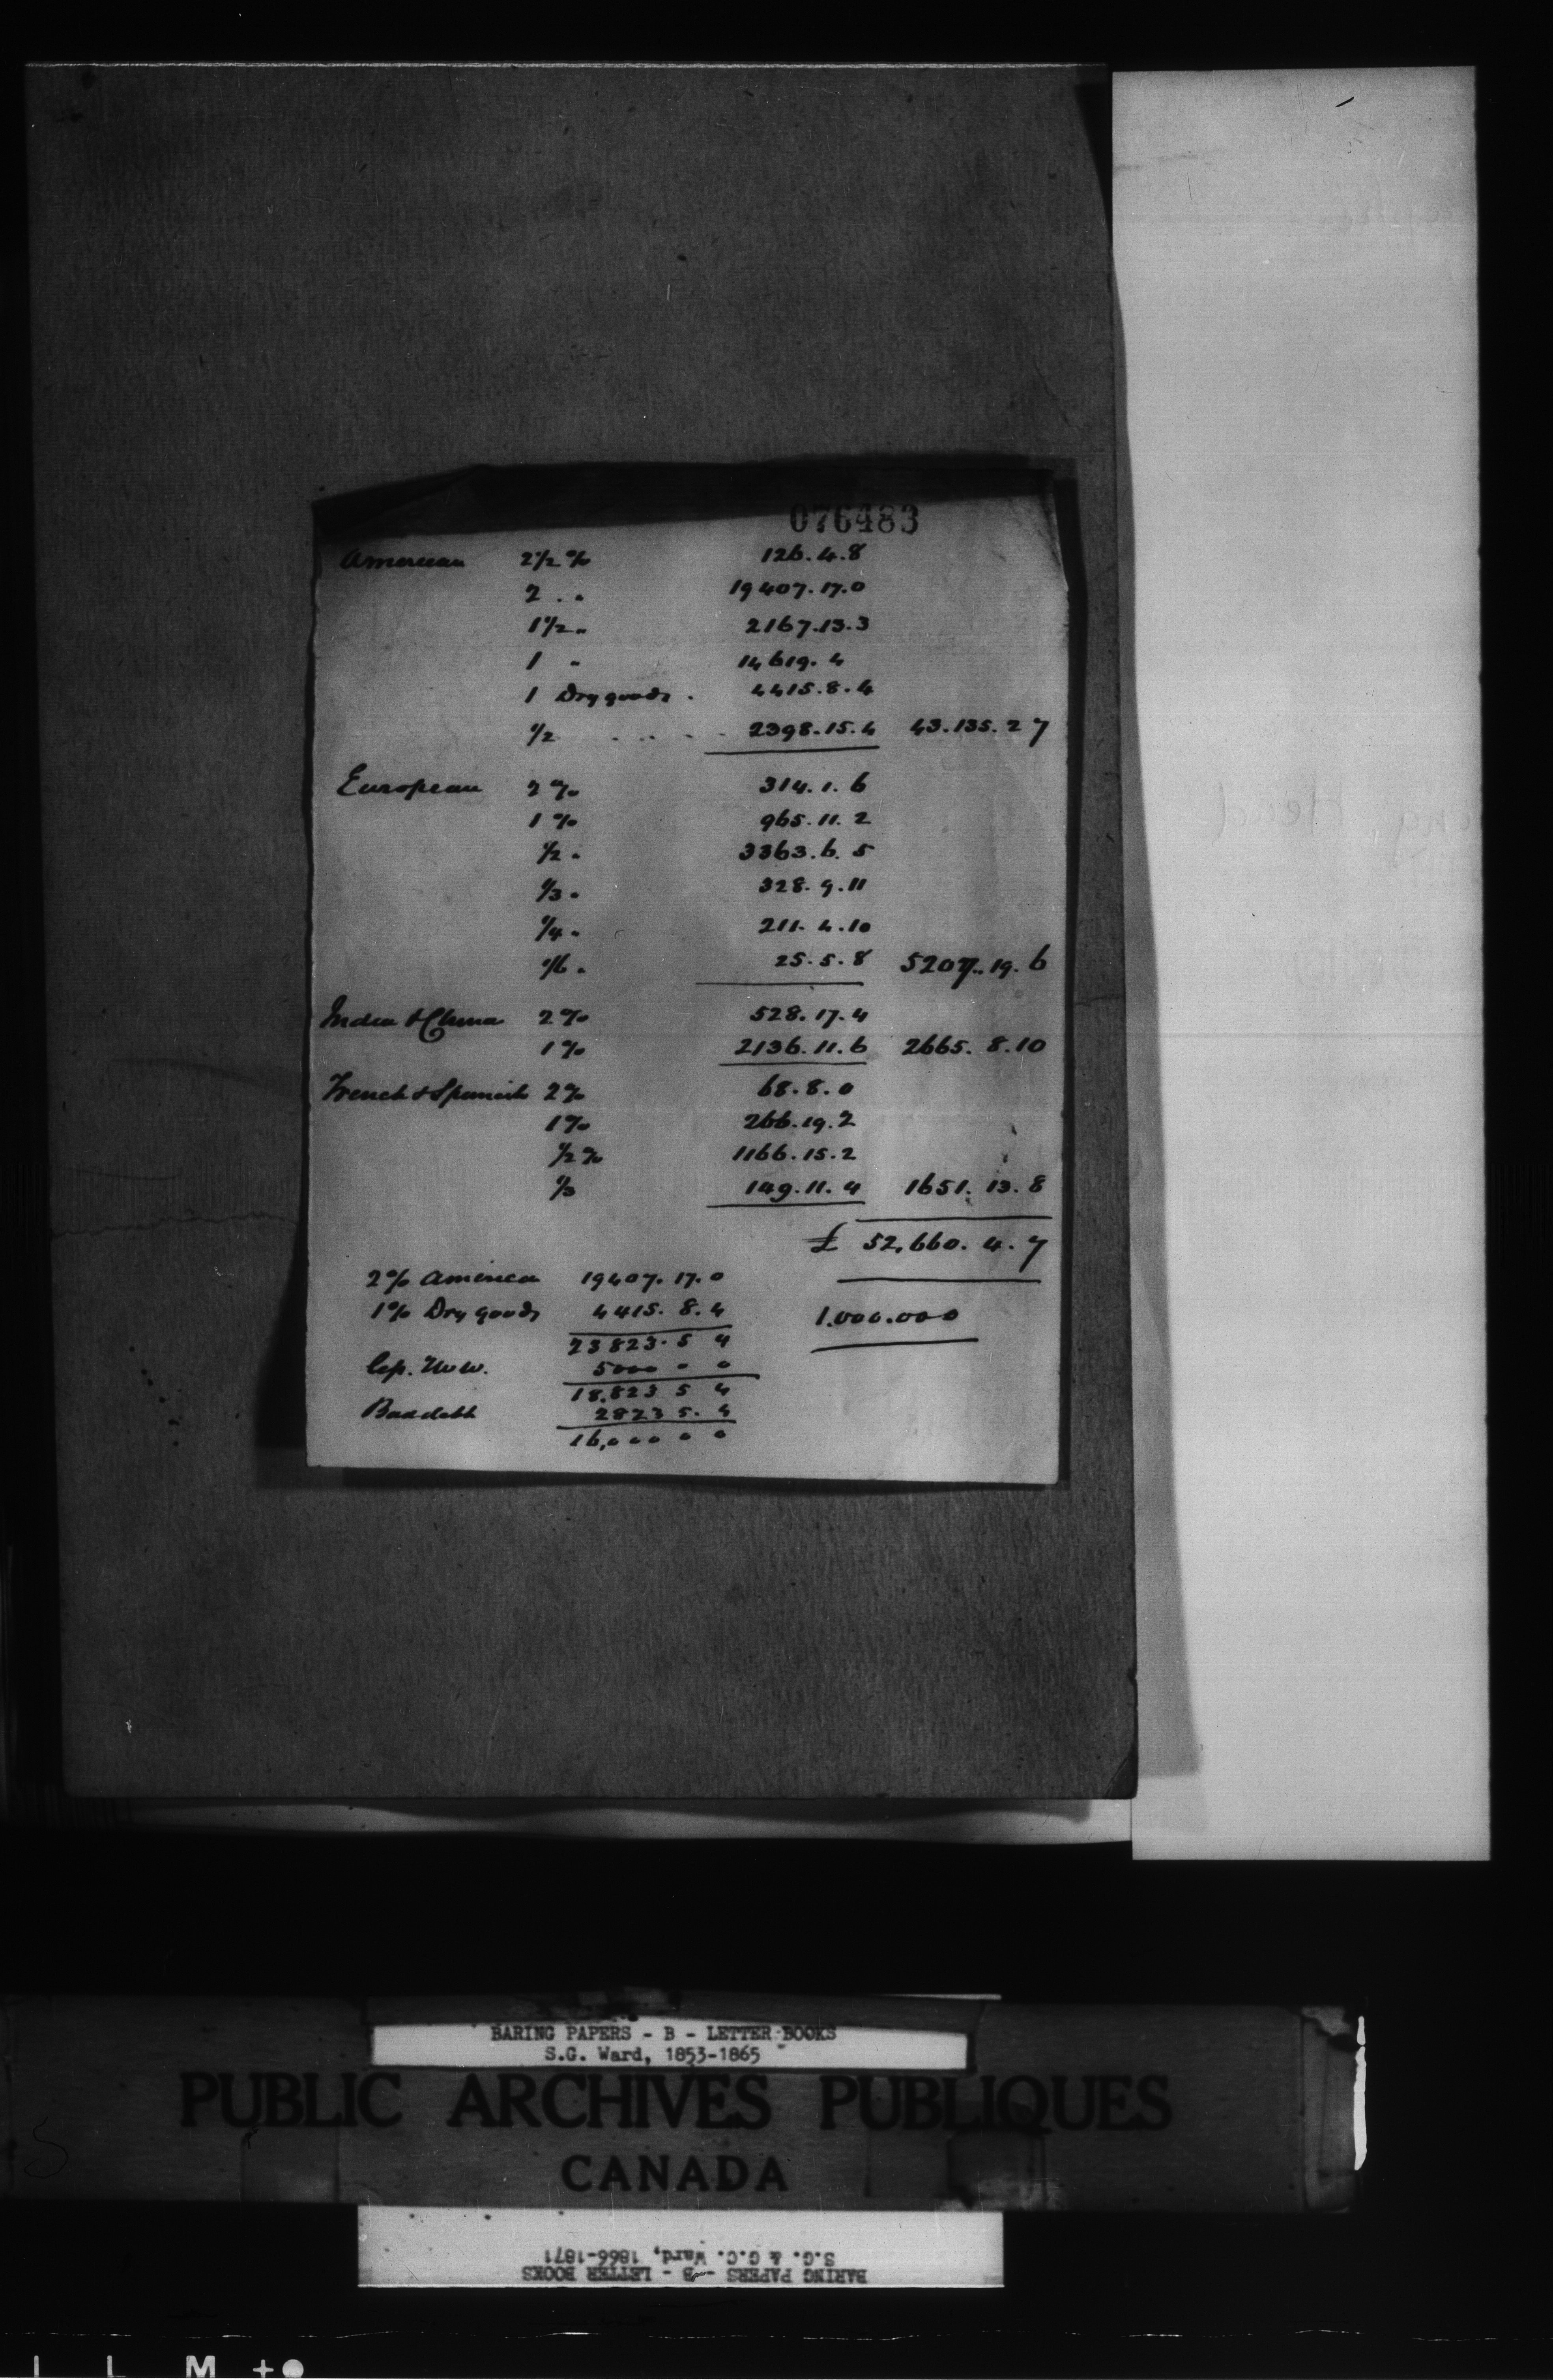 076483
American 2½ % 126.4.8
2 . " 19407.17.0
1½ " 2167.13.3
1 " 14619.4
1 Dry goods . 4415.8.4
½ . . . . 2398.15.4 43.135.2 7
European 2 % 314.1.6
1 % 965.11.2
½ " 3363.6.5
⅓ " 328.9.11
¼ " 211.4.10
⅙ " 25.5.8 5207.19.6
India & China 2 % 528.17.4
1 % 2136.11.6 2665.8.10
French & Spanish 2 % 68.8.0
1 % 266.19.2
½ % 1166.15.2
⅓ 149.11.4 1651.13.8
£ 52,660.4.7
2 % America 19407.17.0
1 % Dry goods 4415.8.4 1.000.000
23823.5 4
5000 0 0
18.823 5 4
Bad debts 2823 5.4
16,000 0 0
BARING PAPERS - B - LETTER BOOKS
S.G. Ward, 1853-1865
PUBLIC ARCHIVES PUBLIQUES
CANADA
BARING PAPERS - B - LETTER BOOKS
S.G. & G.C. Ward, 1866-1871